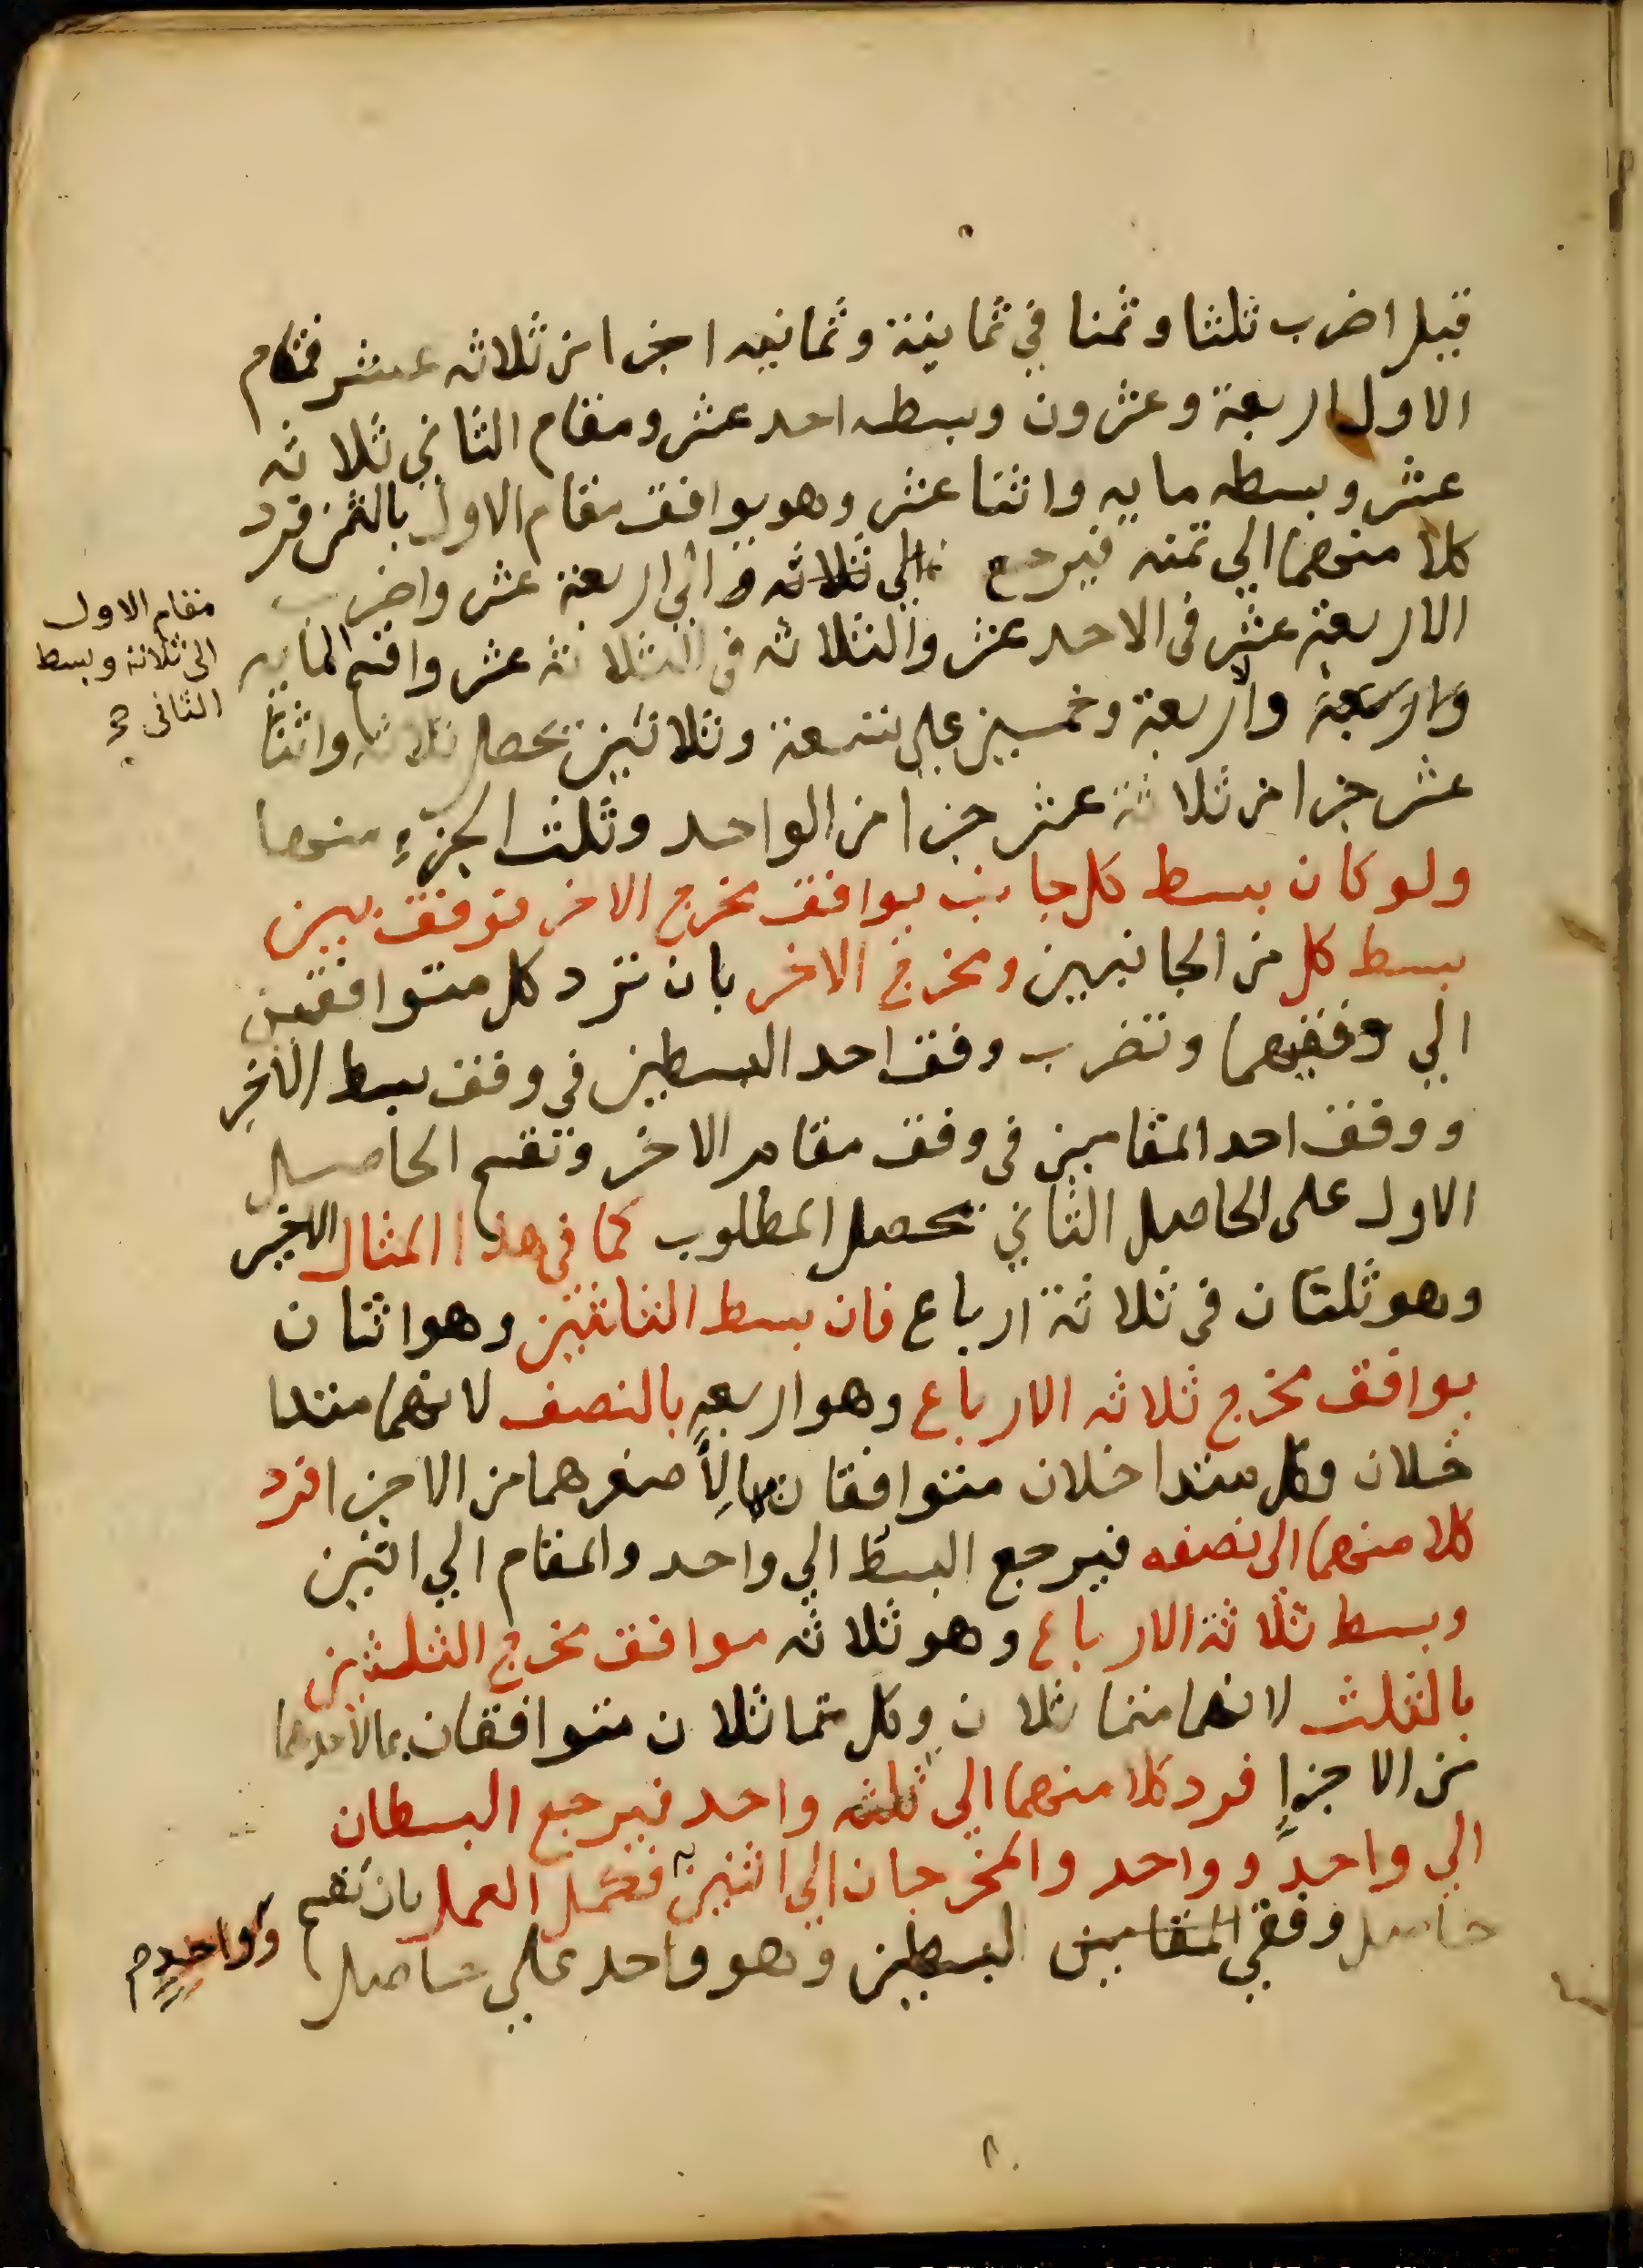 قيل اضرب ثلثا وثمنا في ثمانية وثمانيه اجزا من ثلاثه عشر فمقام
الاول اربعة وعشرون وبسطه احد عشر ومقام الثاني ثلاثه
عشر وبسطه مايه واثنا عشر وهو يوافق مقام الاول بالثمن فرد
كلا منهما الي ثمنه فيرجع الي اربعة عشر واضرب
الاربعة عشر فى الاحد عشر والثلاثه في الثلاثة عشر واقسم المايه
والاربعة وخمسين علي تسعة وثلاثين يحصل ثلاثه واثنا
عشر جزا من ثلاثة عشر جزا من الواحد وثلث الجزء منها
ولو كان بسط كل جانب يوافق مخرج الاخر توفق بين
بسط كل من الجانبين ومخرج الاخر بان ترد كل متوافقين
الي وفقيهما وتضرب وفق احد البسطين في وفق بسط الاخر
ووفق احد المقامين فى وفق مقام الاخر وتقسم الحاصل
الاول على الحاصل الثاني يحصل المطلوب كما فى هذا المثال الاخير
وهو ثلثان فى ثلاثة ارباع فان بسط الثلثين وهو اثنان
يوافق مخرج ثلاثه الارباع وهو اربعه بالنصف لانهما متدا
خلان وكل متداخلان متوافقان بما لأصغرهما من الاجزا فرد
كلا منهما الى نصفه فيرجع البسط الي واحد والمقام الي اثنين
وبسط ثلاثة الارباع وهو ثلاثه موافق مخرج الثلثين
بالثلث لانهما متماثلان وكل متماثلان متوافقان بما لأحدهما
من الاجزا فرد كلا منهما الي ثلثه واحد فيرجع البسطان
الي واحد وواحد والمخرجان الي اثنين فكمل العمل بان تقسم
حاصل وفقي المقامين البسطين وهو واحد علي حاصل
مقام الاول
الى ثلاثة وبسط
الثانى
وواحد